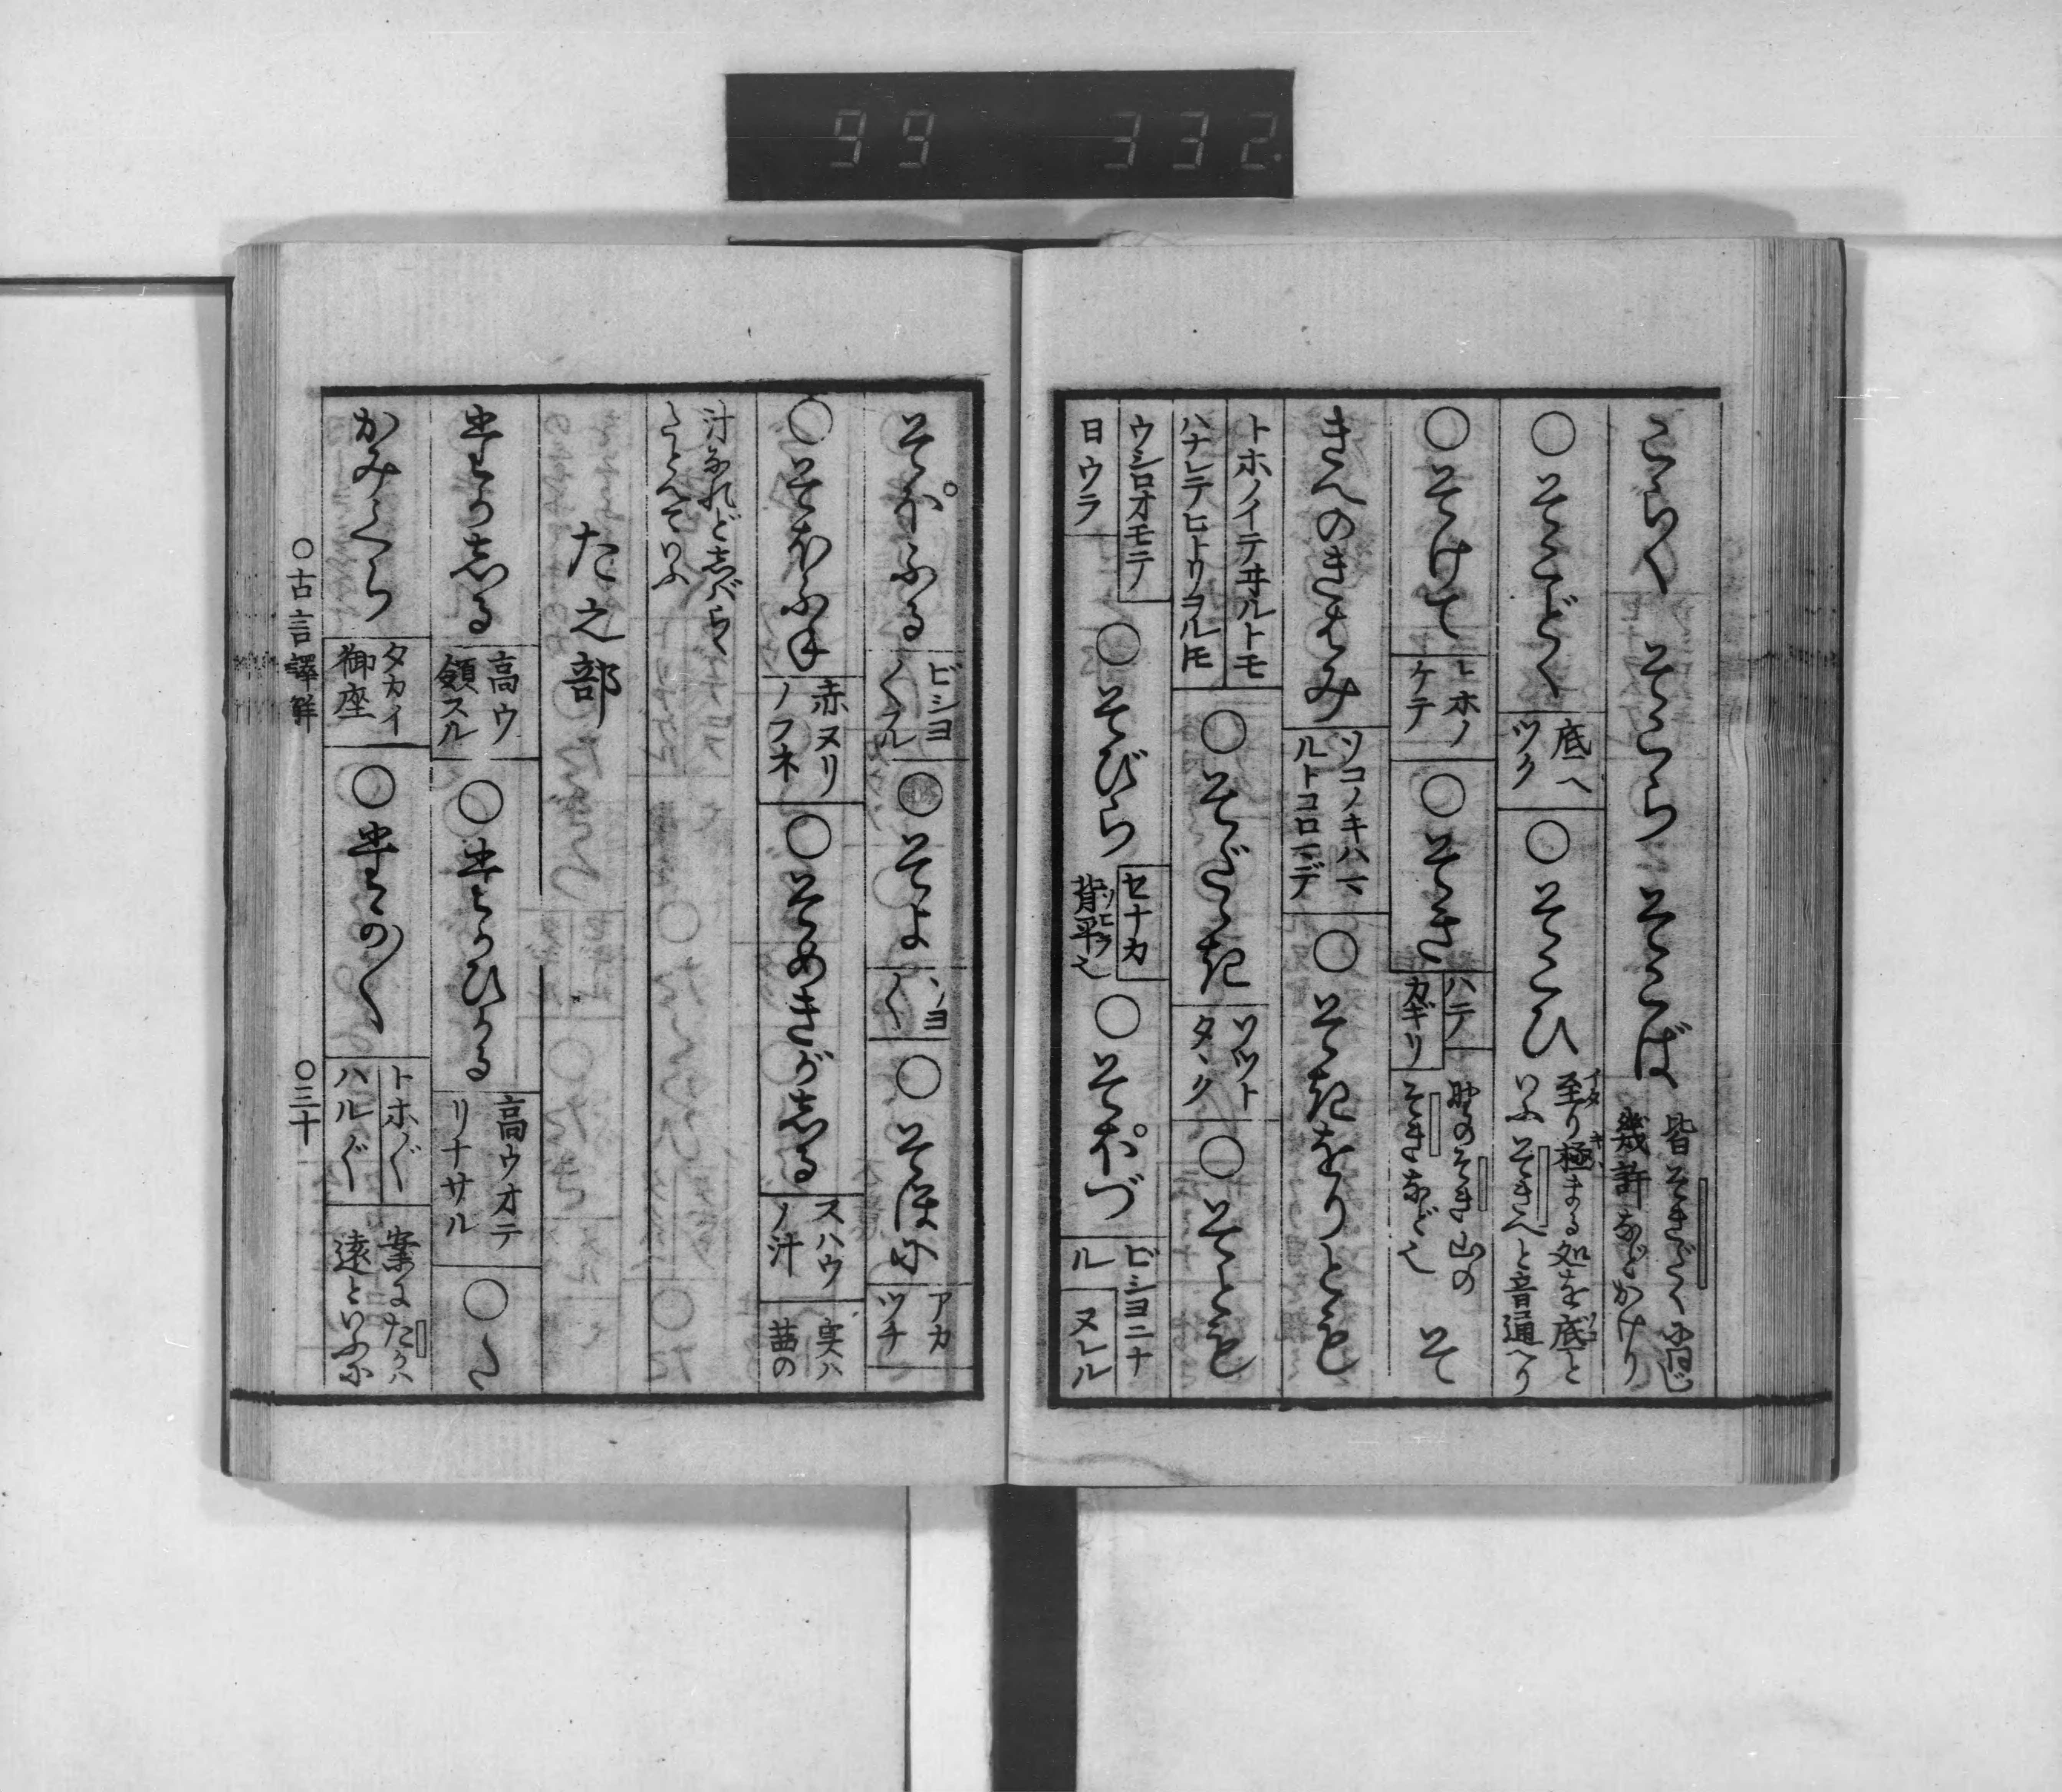 99 332
こらく そこら そこらく そこば 皆そきだく に同じ
幾許などかけり
○そこどく 底ヘ
ツク
○そこひ 至り極まる処を底と
いふそきへと音通へり
○そけて トホノ
ケテ
○そき ハテ
カギリ
野のそき山の
そきなど也
そ
きへのきはみ ソコノキハマ
ルトコロマデ
○そきをりとも
トホノイテヰルトモ
ハナレテヒトリヲルトモ
○そだゝき ソツト
タヽク
○そとも
ウシロオモテノ
日ウラ
○そびら セナカ
背平也
○そぼづ ビシヨニナ
ル ヌレル
そぼふる ビシヨ
〳〵フル
○そよ ソヨ
〳〵
○そほに アカ
ツチ
○そほふね 赤ヌリ
ノフネ
○そめきがしる スハウ
ノ汁
実ハ
茜の
汁なれどしばらく
たとへていふ
た之部
たかしる 高ウ
領スル
○たかひかる 高ウオテ
リナサル
○た
かみくら タカイ
御座
○たか〳〵 トホ〴〵
ハル〴〵
案にたかハ
遠といふに
○古言譯解 ○三十